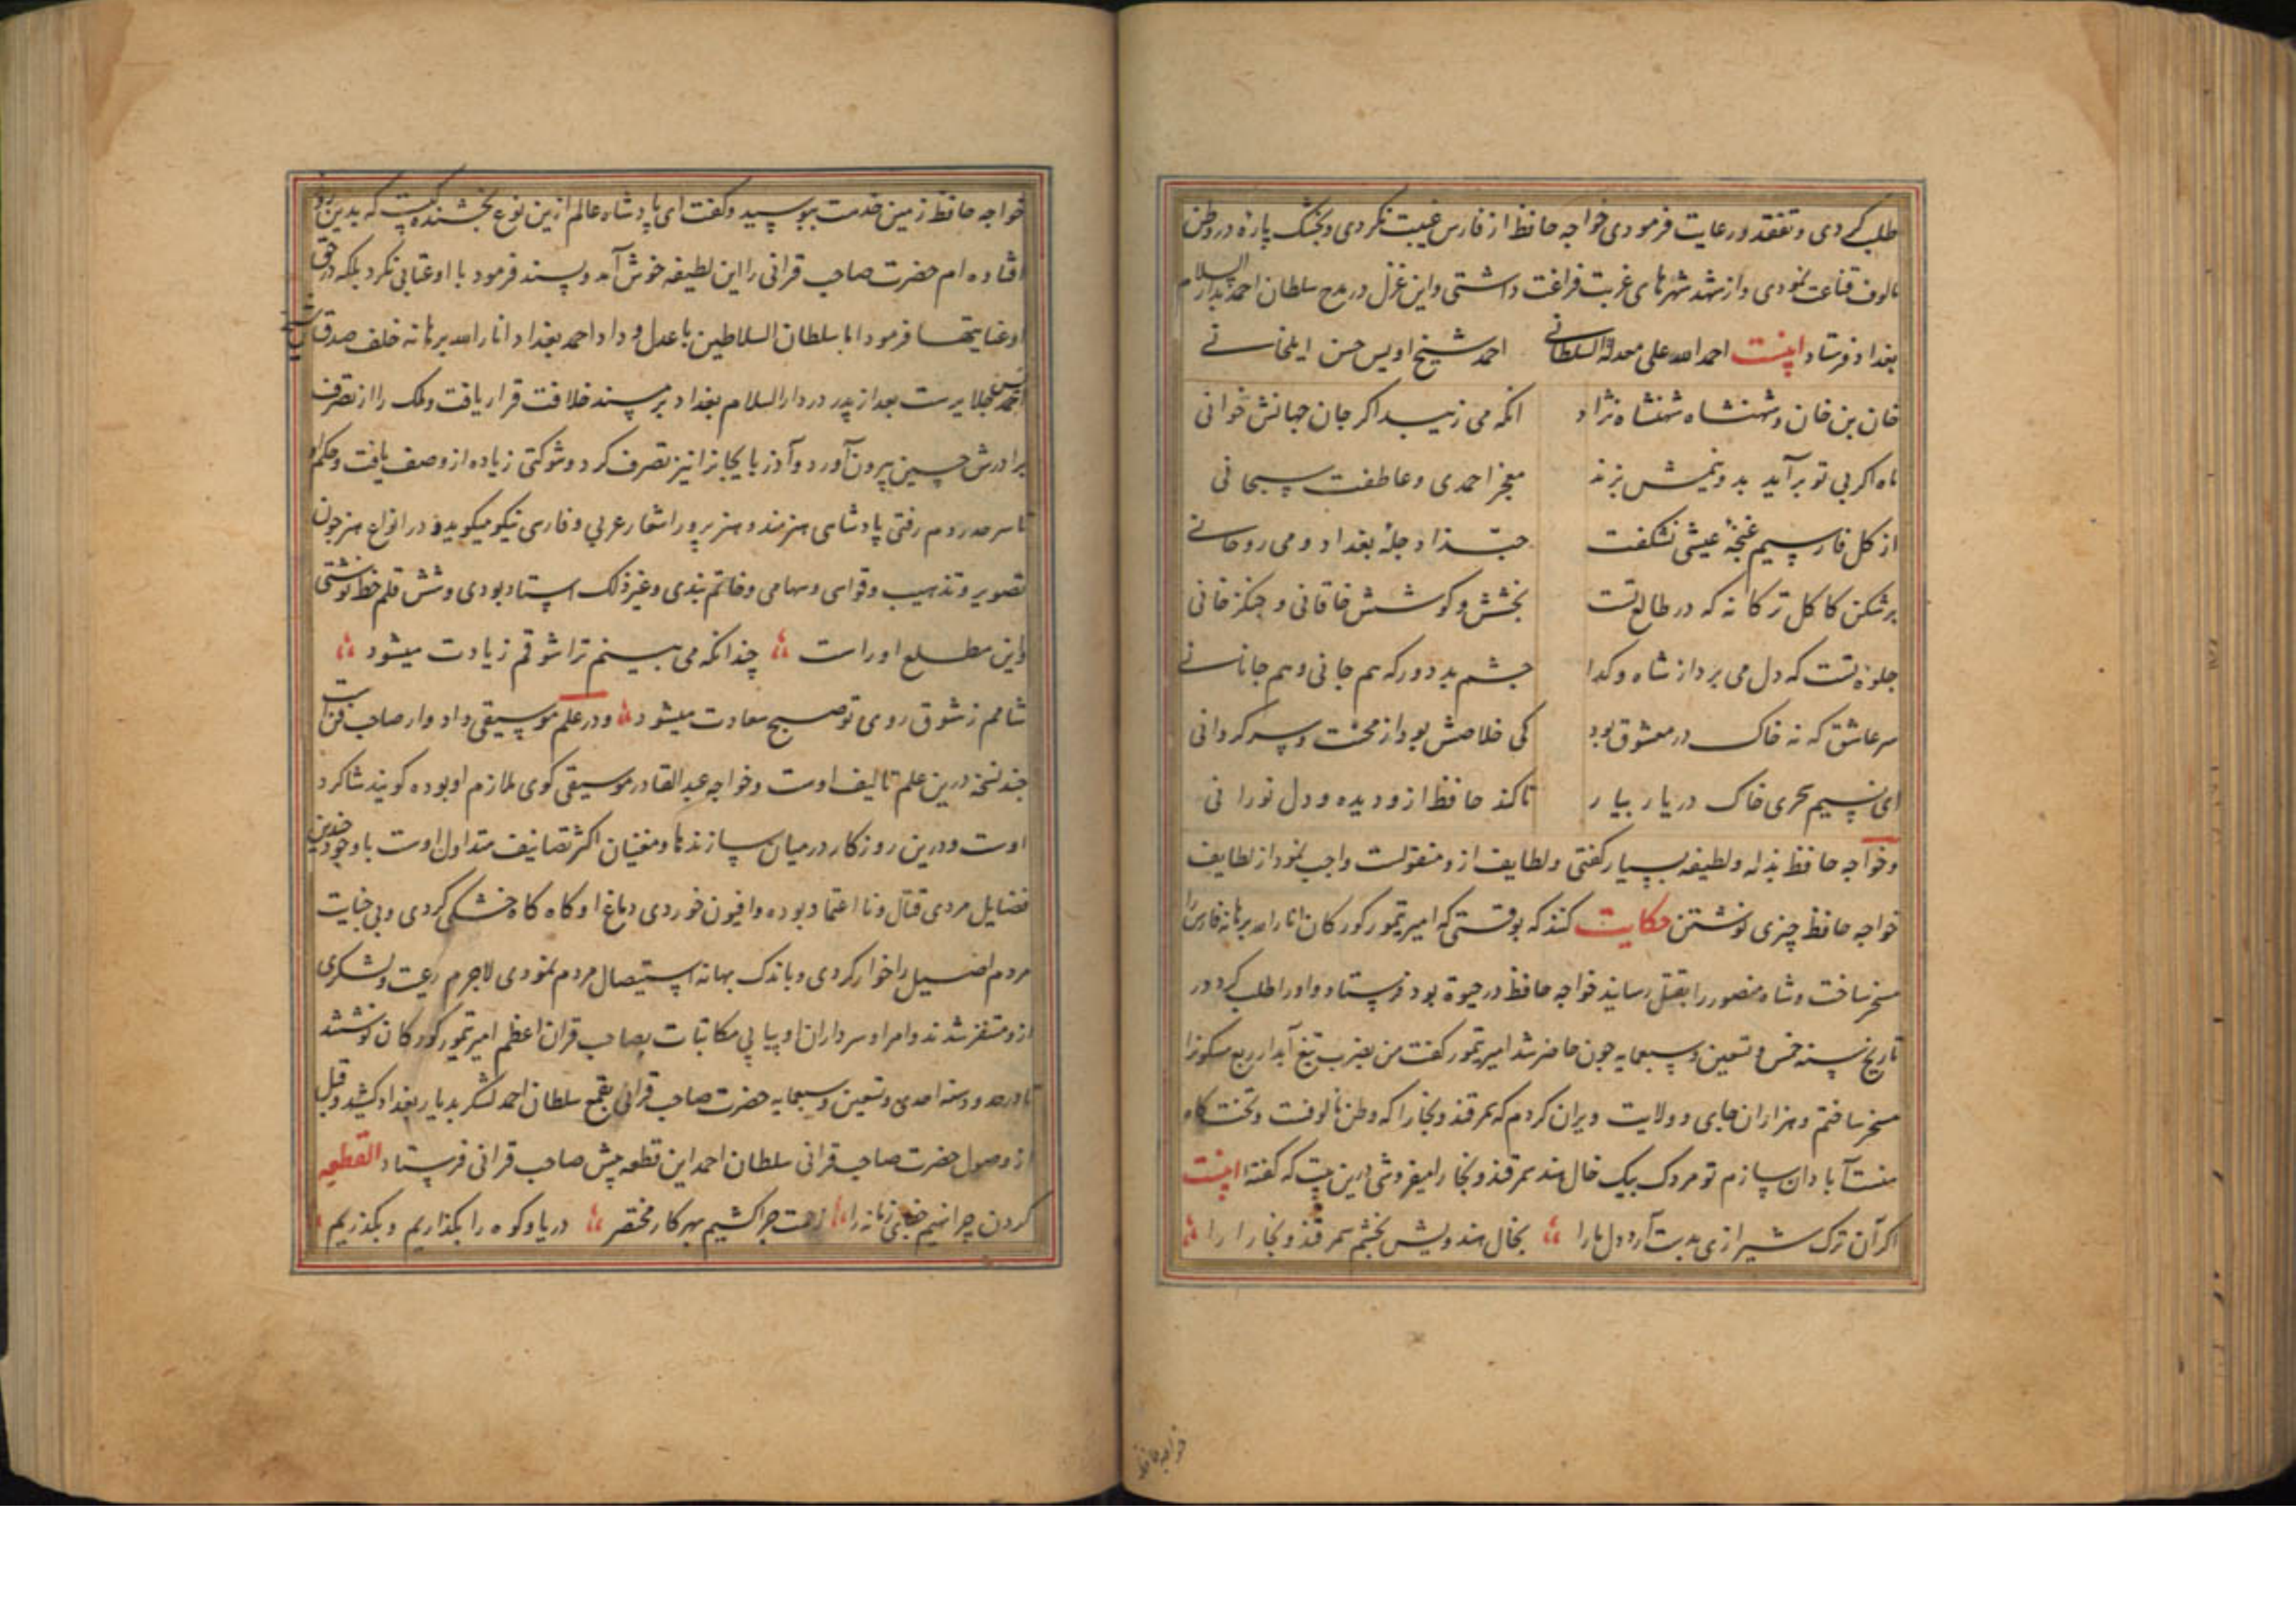 طلب کردی و تفقد و رعایت فرمودی خواجه حافظ از فارس غیبت نکردی و بخشک پارهٔ در وطن
مالوف قناعت نمودی و از شهد شهرهای غربت فراغت داشتی و این غزل در مدح سلطان احمد بدار السلام
بغداد فرستاد اینست احمد الله علی معدلة السلطانی احمد شیخ اویس حسن ایلخانی
خان بن خان و شهنشاه شهنشاه نژاد انکه می زیبد اگر جان جهانش خوانی
ماه اگر بی تو برآید بدو نیمش بزند معجز احمدی و عاطفت سبحانی
از کل فارسیم غنچهٔ عیشی نشکفت حبّذا دجلهٔ بغداد و می روحانی
برشکن کاکل ترکانه که در طالع تست بخشش و کوشش خاقانی و چنکز خانی
جلوهٔ تست که دل می برد از شاه و کدا چشم بد دور که هم جانی و هم جانانی
سر عاشق که نه خاک در معشوق بود کی خلاصش بود از محنت و سر کردانی
ای نسیم سحری خاک در یار بیار تا کند حافظ ازو دیده و دل نورانی
و خواجه حافظ بذله و لطیفه بسیار کفتی و لطایف ازو منقولست واجب نمود از لطایف
خواجه حافظ چیزی نوشتن حکایت کنند که بوقتی که امیر تیمور کورکان انار الله برهانه فارس را
مسخر ساخت و شاه منصور را بقتل رسانید خواجه حافظ در حیوة بود فرستاد و او را طلب کرد در
تاریخ سنه خمس و تسعین و سبعمایه چون حاضر شد امیر تیمور کفت من بضرب تیغ آبدار ربع مسکونرا
مسخر ساختم و هزاران جای و ولایت ویران کردم که سمرقند و بخارا که وطن مالوفت و تختکاه
منست آبادان سازم تو مردک بیک خال هند سمرقند و بخارا میفروشی درین بیت که کفتهٔ اینست
اکر آن ترک شیرازی بدست آرد دل ما را بخال هندویش بخشم سمرقند و بخارا را
خواجه حافظ
خواجه حافظ زمین خدمت ببوسید و کفت ای پادشاه عالم ازین نوع بخشندکیست که بدین روز
افتاده ام حضرت صاحب قرانی را این لطیفه خوش آمد و پسند فرمود با او عتابی نکرد بلکه در حق
او عنایتها فرمود اما سلطان السلاطین با عدل و داد احمد بغداد انار الله برهانه خلف صدق
جلایرست بعد از پدر در دار السلام بغداد بر مسند خلافت قرار یافت و ملک را از تصرف
برادرش حسین بیرون آورد و آذربایجانرا نیز تصرف کرد و شوکتی زیاده از وصف یافت و حکم او
تا سرحد روم رفتی پادشاهی هنرمند و هنرپرور اشعار عربی و فارسی نیکو میکوید و در انواع هنر چون
تصویر و تذهیب و قواسی و سهامی و خاتم بندی و غیر ذلک استاد بودی و شش قلم خط نوشتی
و این مطلع اوراست چندانکه می بینم ترا شوقم زیادت میشود
شامم ز شوق روی تو صبح سعادت میشود و در علم موسیقی و ادوار صاحب فن است
چند نسخه درین علم تالیف اوست و خواجه عبد القادر موسیقی کوی ملازم او بوده کویند شاکرد
اوست و درین روزکار در میان سازندها و مغنیان اکثر تصانیف متداول اوست با وجود چندین
فضایل مردی قتال و نا اعتماد بوده و افیون خوردی دماغ او کاه کاه خشکی کردی و بی جنایت
مردم اصیل را خوار کردی و باندک بهانه استیصال مردم نمودی لاجرم رعیت و لشکری
ازو متنفر شدند و امرا و سرداران او پیاپی مکاتبات بصاحب قران اعظم امیر تیمور کورکان نوشتند
تا در حدود سنه احدی و تسعین و سبعمایه حضرت صاحب قرانی بقمع سلطان احمد لشکر بدیار بغداد کشید و قبل
از وصول حضرت صاحب قرانی سلطان احمد این قطعه پیش صاحب قرانی فرستاد القطعه
کردن چرا نهیم جفای زمانه را زحمت چرا کشیم بهر کار مختصر دریا و کوه را بکذاریم و بکذریم